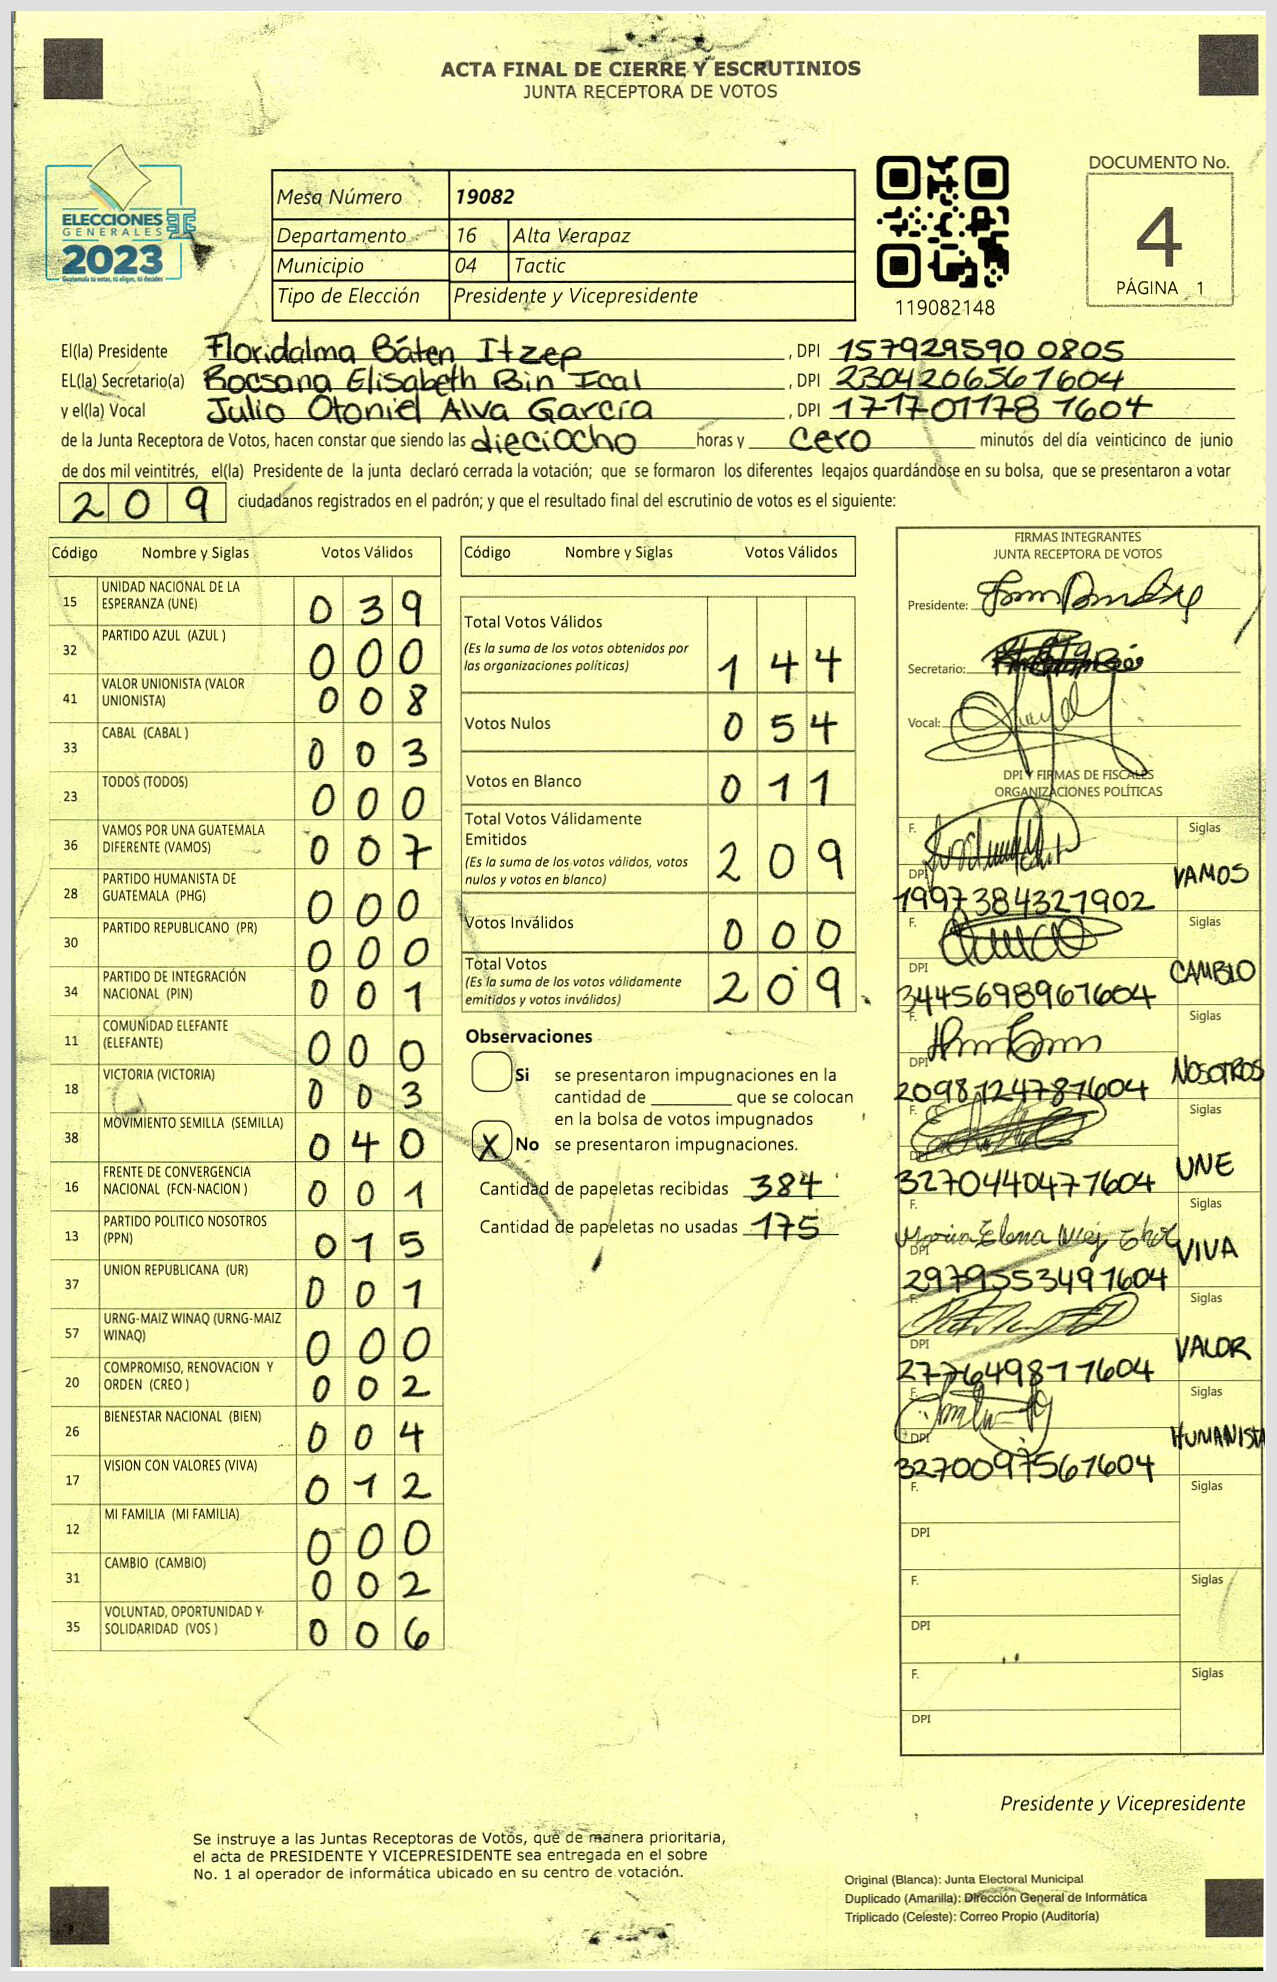 ACTA FINAL DE CIERRE Y ESCRUTINIOS
JUNTA RECEPTORA DE VOTOS
ELECCIONES
GENERALES
2023
Guatemala tú votas, tú eliges, tú decides
Mesa Número 19082
Departamento 16 Alta Verapaz
Municipio 04 Tactic
Tipo de Elección Presidente y Vicepresidente
119082148
DOCUMENTO No.
4
PÁGINA 1
El(la) Presidente Floridalma Báten Itzep, DPI 157929590 0805
EL(la) Secretario(a) Rocsana Elisabeth Bin Ical, DPI 2304206561604
y el(la) Vocal Julio Otoniel Alva García, DPI 171701178 1604
de la Junta Receptora de Votos, hacen constar que siendo las dieciocho horas y cero minutos del día veinticinco de junio
de dos mil veintitrés, el(la) Presidente de la junta declaró cerrada la votación; que se formaron los diferentes legajos guardándose en su bolsa, que se presentaron a votar
209 ciudadanos registrados en el padrón; y que el resultado final del escrutinio de votos es el siguiente:
Código Nombre y Siglas Votos Válidos
15 UNIDAD NACIONAL DE LA
ESPERANZA (UNE) 039
32 PARTIDO AZUL (AZUL ) 000
41 VALOR UNIONISTA (VALOR
UNIONISTA) 008
33 CABAL (CABAL ) 003
23 TODOS (TODOS) 000
36 VAMOS POR UNA GUATEMALA
DIFERENTE (VAMOS) 007
28 PARTIDO HUMANISTA DE
GUATEMALA (PHG) 000
30 PARTIDO REPUBLICANO (PR) 000
34 PARTIDO DE INTEGRACIÓN
NACIONAL (PIN) 001
11 COMUNIDAD ELEFANTE
(ELEFANTE) 000
18 VICTORIA (VICTORIA) 003
38 MOVIMIENTO SEMILLA (SEMILLA) 040
16 FRENTE DE CONVERGENCIA
NACIONAL (FCN-NACION ) 001
13 PARTIDO POLITICO NOSOTROS
(PPN) 015
37 UNION REPUBLICANA (UR) 001
57 URNG-MAIZ WINAQ (URNG-MAIZ
WINAQ) 000
20 COMPROMISO, RENOVACION Y
ORDEN (CREO ) 002
26 BIENESTAR NACIONAL (BIEN) 004
17 VISION CON VALORES (VIVA) 012
12 MI FAMILIA (MI FAMILIA) 000
31 CAMBIO (CAMBIO) 002
35 VOLUNTAD, OPORTUNIDAD Y
SOLIDARIDAD (VOS ) 006
Código Nombre y Siglas Votos Válidos
Total Votos Válidos
(Es la suma de los votos obtenidos por
las organizaciones políticas) 144
Votos Nulos 054
Votos en Blanco 011
Total Votos Válidamente
Emitidos
(Es la suma de los votos válidos, votos
nulos y votos en blanco) 209
Votos Inválidos 000
Total Votos
(Es la suma de los votos válidamente
emitidos y votos inválidos) 209.
Observaciones
Si se presentaron impugnaciones en la
cantidad de ________ que se colocan
en la bolsa de votos impugnados
X No se presentaron impugnaciones.
Cantidad de papeletas recibidas 384
Cantidad de papeletas no usadas 175
FIRMAS INTEGRANTES
JUNTA RECEPTORA DE VOTOS
Presidente:
Secretario:
Vocal:
DPI Y FIRMAS DE FISCALES
ORGANIZACIONES POLÍTICAS
F. Siglas
DPI VAMOS
1997384321902
F. Siglas
DPI CAMBIO
3445698961604
F. Siglas
DPI NOSOTROS
2098124781604
F. Siglas
DPI UNE
3270440471604
F. Siglas
Elena
DPI VIVA
2979553491604
F. Siglas
DPI VALOR
2776498111604
F. Siglas
DPI HUMANISTA
3270097561604
F. Siglas
DPI
F. Siglas
DPI
F. Siglas
DPI
Presidente y Vicepresidente
Se instruye a las Juntas Receptoras de Votos, que de manera prioritaria,
el acta de PRESIDENTE Y VICEPRESIDENTE sea entregada en el sobre
No. 1 al operador de informática ubicado en su centro de votación.
Original (Blanca): Junta Electoral Municipal
Duplicado (Amarilla): Dirección General de Informática
Triplicado (Celeste): Correo Propio (Auditoría)